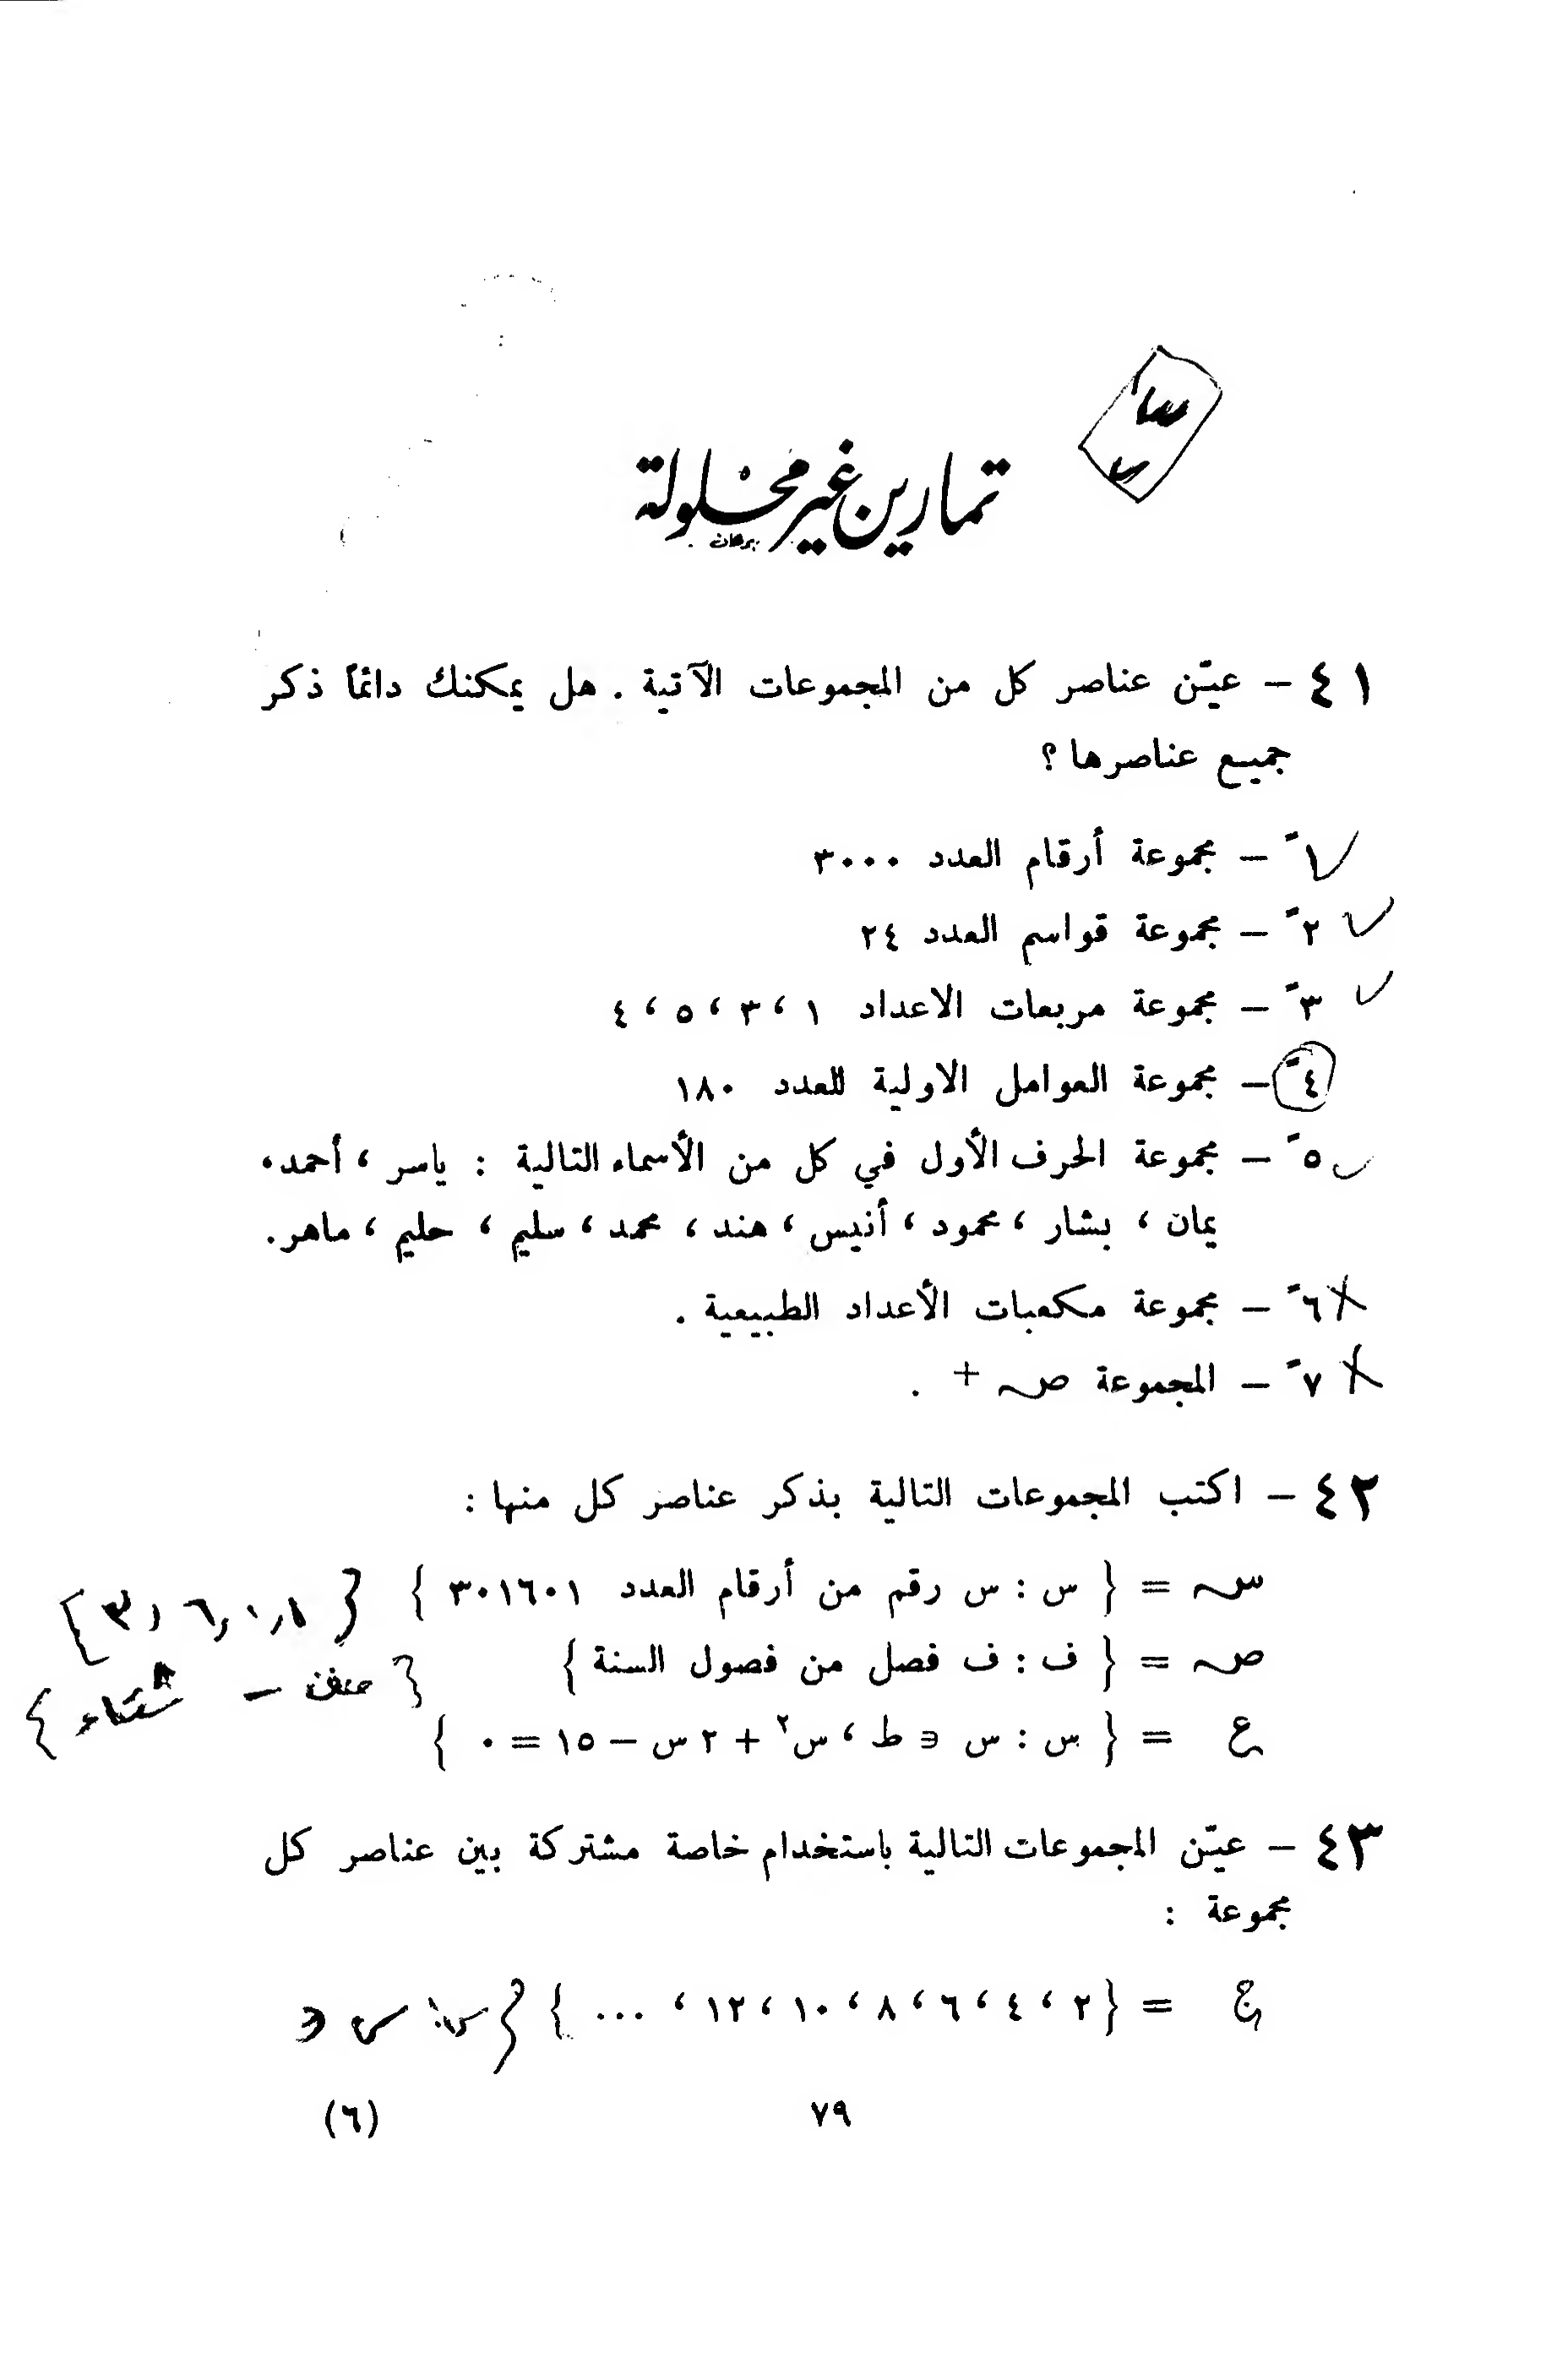 تمارين غير محلولة
برهان
٤١ – عيّن عناصر كل من المجموعات الآتية . هل يمكنك دائماً ذكر
جميع عناصرها ؟
١ً – مجموعة أرقام العدد ٣٠٠٠
٢ً – مجموعة قواسم العدد ٢٤
٣ً – مجموعة مربعات الاعداد ١ ، ٣ ، ٥ ، ٤
٤ً – مجموعة العوامل الاولية للعدد ١٨٠
٥ً – مجموعة الحرف الأول في كل من الأسماء التالية : ياسر ، أحمد ،
يمان ، بشار ، محمود ، أنيس ، هند ، محمد ، سليم ، حليم ، ماهر .
٦ً – مجموعة مكعبات الأعداد الطبيعية .
٧ً – المجموعة صـ + .
٤٢ – اكتب المجموعات التالية بذكر عناصر كل منها :
سـ = { س : س رقم من أرقام العدد ٣٠١٦٠١ } { ١ , ٠ , ٦ , ٣ }
صـ = { ف : ف فصل من فصول السنة } { صيف – شتاء }
ع = { س : س ∈ ط ، س٢ + ٢ س – ١٥ = ٠ }
٤٣ – عيّن المجموعات التالية باستخدام خاصة مشتركة بين عناصر كل
مجموعة :
ج = { ٢ ، ٤ ، ٦ ، ٨ ، ١٠ ، ١٢ ، ... } { س : س ∈
٧٩
(٦)